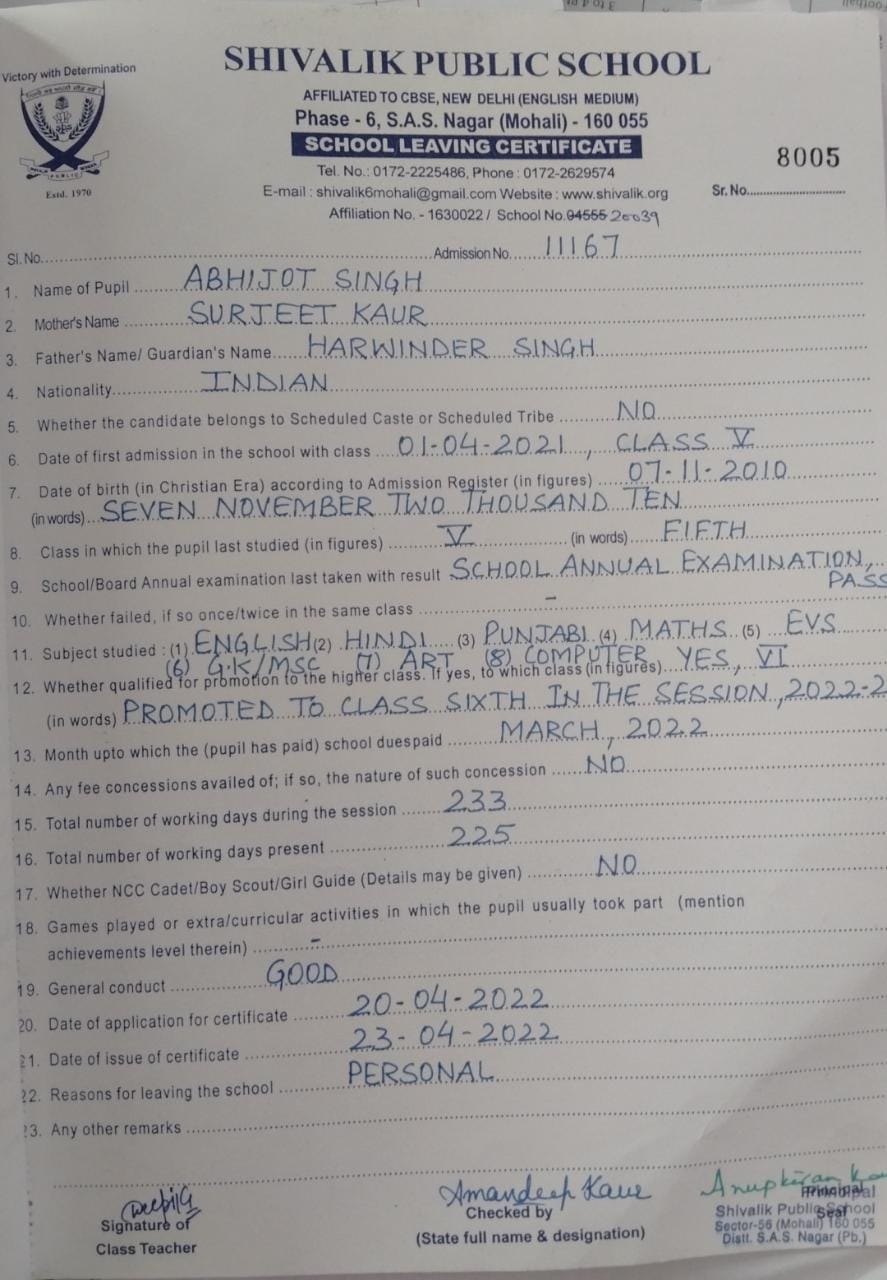 Victory with Determination
SHIVALIK PUBLIC SCHOOL
AFFILIATED TO CBSE, NEW DELHI (ENGLISH MEDIUM)
Phase - 6, S.A.S. Nagar (Mohali) - 160 055
SCHOOL LEAVING CERTIFICATE
PUBLIC
Estd. 1970
Tel. No.: 0172-2225486, Phone : 0172-2629574
8005
E-mail : shivalik6mohali@gmail.com Website : www.shivalik.org
Sr. No.
Affiliation No. - 1630022 / School No. 04555 20039
Sl. No. Admission No. 11167
1. Name of Pupil ABHIJOT SINGH
2. Mother's Name SURJEET KAUR
3. Father's Name/ Guardian's Name HARWINDER SINGH
4. Nationality INDIAN
5. Whether the candidate belongs to Scheduled Caste or Scheduled Tribe NO
6. Date of first admission in the school with class 01-04-2021, CLASS V
7. Date of birth (in Christian Era) according to Admission Register (in figures) 07-11-2010
(in words) SEVEN NOVEMBER TWO THOUSAND TEN
8. Class in which the pupil last studied (in figures) V (in words) FIFTH
9. School/Board Annual examination last taken with result SCHOOL ANNUAL EXAMINATION,
PASS
10. Whether failed, if so once/twice in the same class -
11. Subject studied : (1) ENGLISH (2) HINDI (3) PUNJABI (4) MATHS (5) EVS
(6) G.K/MSC (7) ART (8) COMPUTER
12. Whether qualified for promotion to the higher class. If yes, to which class (in figures) YES, VI
(in words) PROMOTED TO CLASS SIXTH IN THE SESSION, 2022-2
13. Month upto which the (pupil has paid) school duespaid MARCH, 2022
14. Any fee concessions availed of; if so, the nature of such concession NO
15. Total number of working days during the session 233
16. Total number of working days present 225
17. Whether NCC Cadet/Boy Scout/Girl Guide (Details may be given) NO
18. Games played or extra/curricular activities in which the pupil usually took part (mention
achievements level therein) -
19. General conduct GOOD
20. Date of application for certificate 20-04-2022
21. Date of issue of certificate 23-04-2022
22. Reasons for leaving the school PERSONAL
23. Any other remarks
Amandeep Kaur
Anupkiran
Signature of
Class Teacher
Checked by
(State full name & designation)
Principal
Seal
Shivalik Public School
Sector-56 (Mohali) 160 055
Distt. S.A.S. Nagar (Pb.)